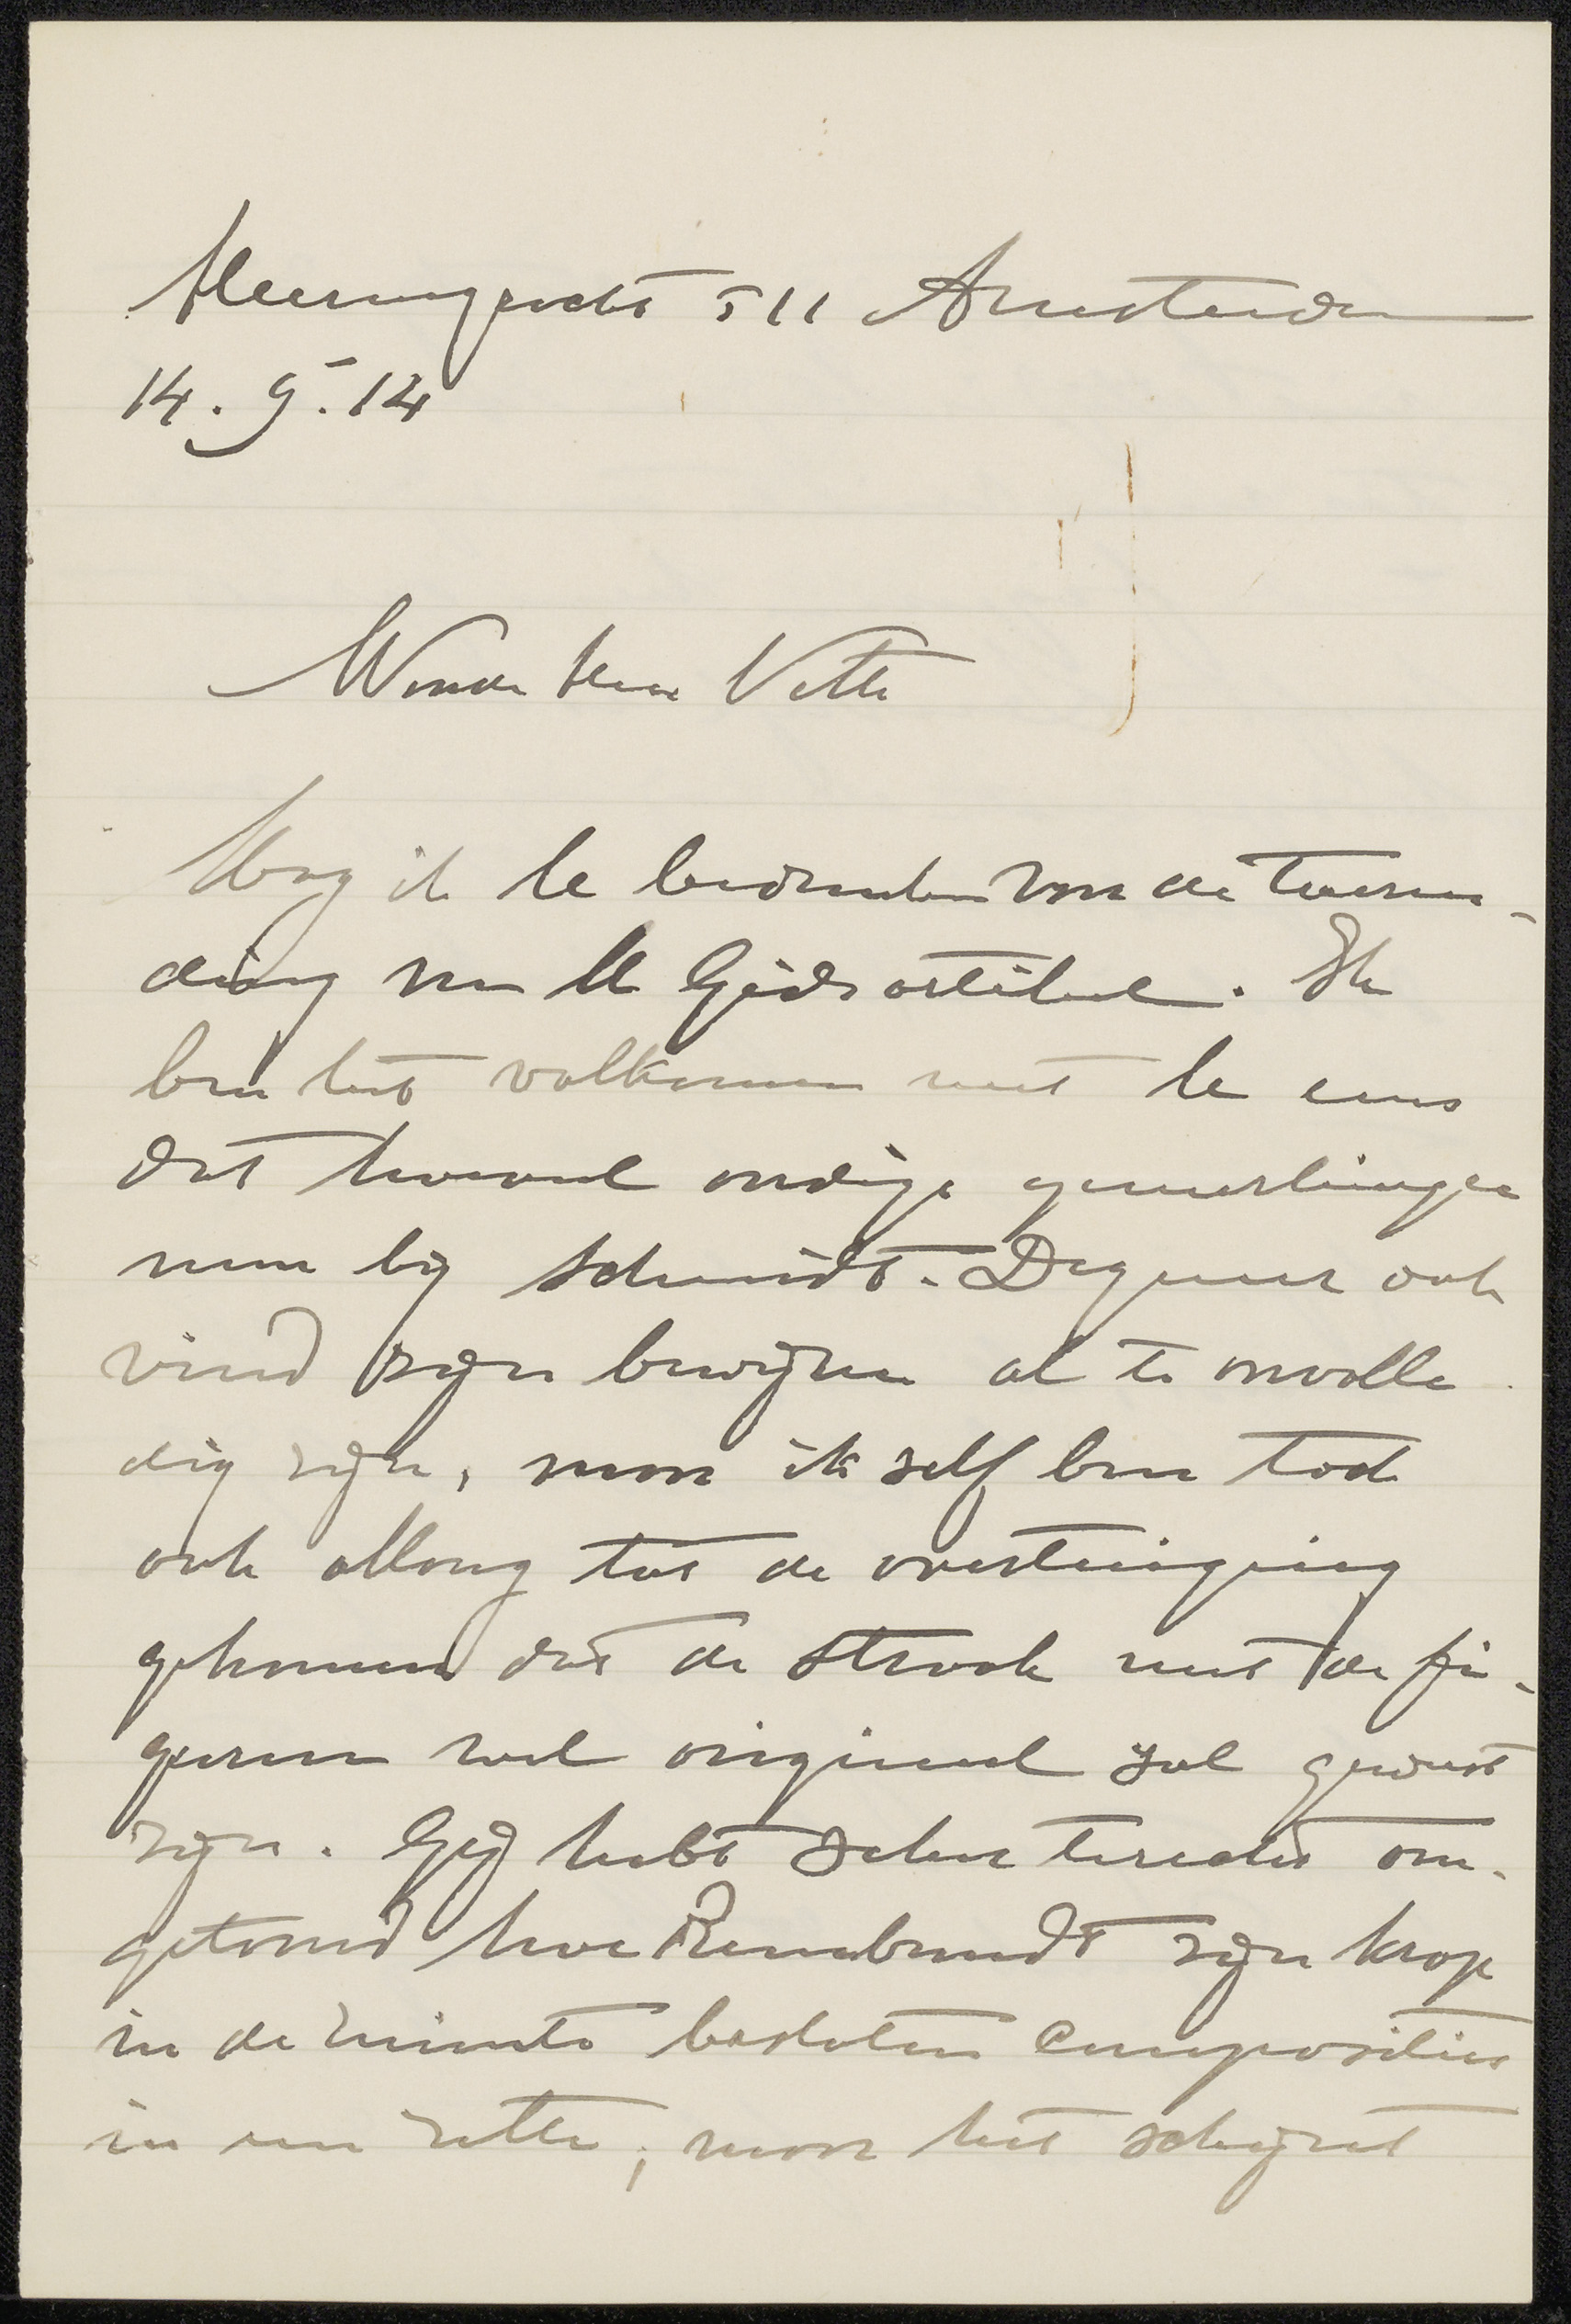 Heerengracht 511 Amsterdam
14.9.14
Waarde Heer Veth
Mag ik U bedanken voor de toezen-
ding van Uw Gidsartikel. Ik
ben het volkomen met U eens
dat hoeveel aardige opmerkingen
men bij Schmidt-Degener ook
vind zijn bewijzen al te onvolle
dig zijn, maar ik zelf ben toch
ook allang tot de overtuiging
gekomen dat de strook met de fi-
guren wel origineel zal geweest
zijn. Gij hebt zeker terecht aan-
getoond hoe Rembrandt zijn
in de ruimte besloten composities
in een zette; maar het schijnt